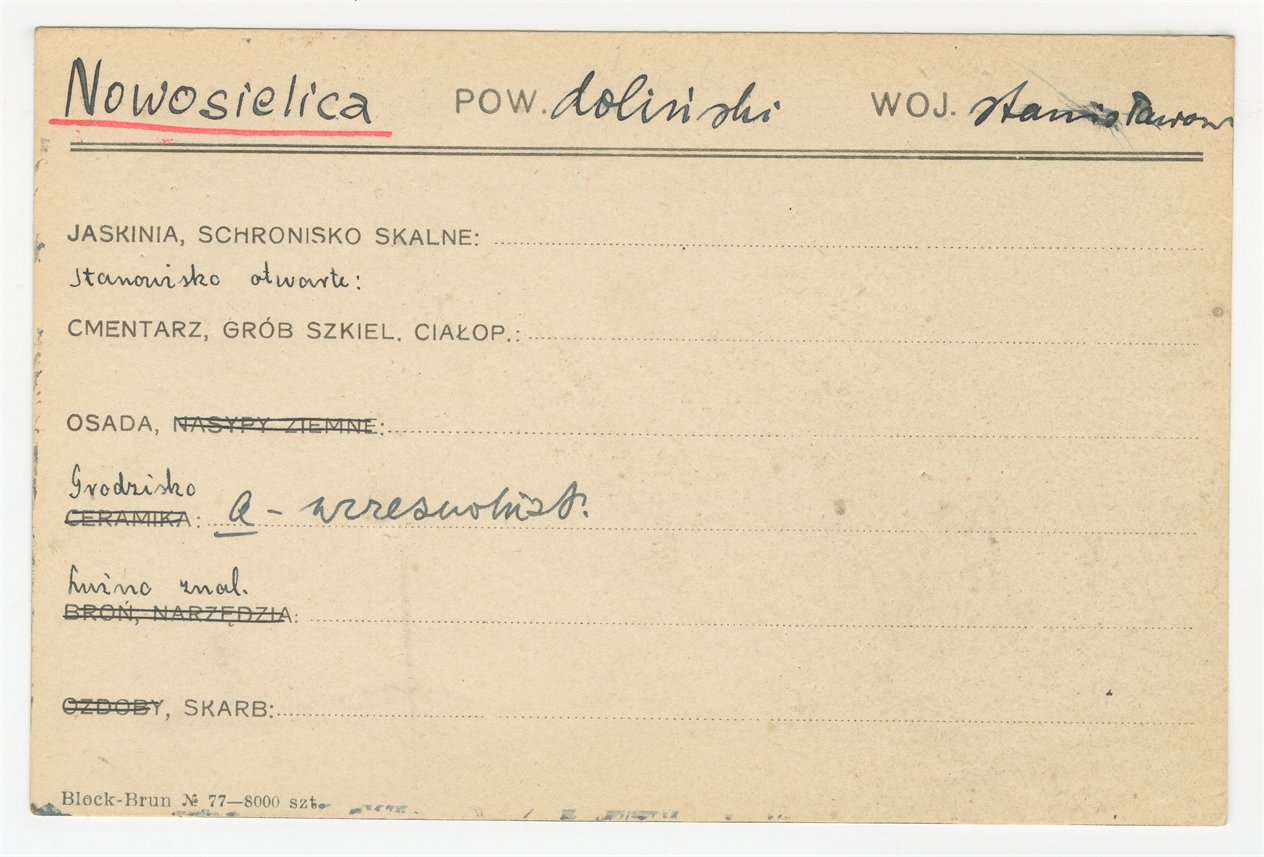 Nowosielica POW. doliński WOJ. stanisławow
JASKINIA, SCHRONISKO SKALNE:
Stanowisko otwarte:
CMENTARZ, GRÓB SZKIEL. CIAŁOP.:
OSADA, NASYPY ZIEMNE:
Grodzisko
CERAMIKA: a - wczesnohist.
Luźne znal.
BROŃ, NARZĘDZIA:
OZDOBY, SKARB:
Block-Brun № 77—8000 szt.